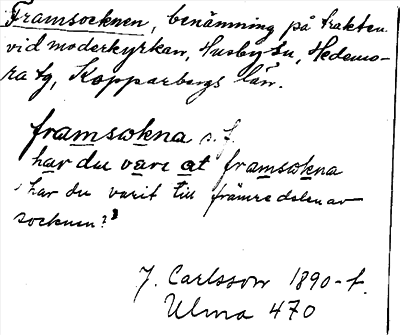 Framsocknen, benämning på trakten
vid moderkyrkan, Husby sn, Hedemo-
ra tg, Kopparbergs län.
framsokna s. f.
har du vare at framsokna
'har du varit till främre delen av
socknen?'
J. Carlsson 1890-t.
Ulma 470